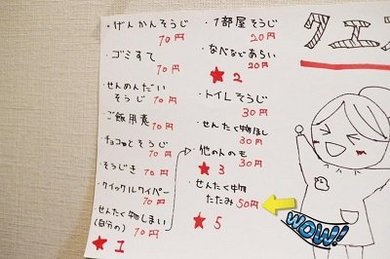 ・げんかんそうじ
10円
・ゴミすて
10円
・せんめんだい
そうじ 10円
・ご飯用意
10円
・チョコっとそうじ
10円
・そうじき 10円
・クイックルワイパー
10円
・せんたく物しまい
(自分の) 10円
★1
・1部屋そうじ
20円
・なべなどあらい
20円
★2
・トイレそうじ
30円
・せんたく物ほし
30円
・他の人のも
★3 30円
・せんたく物
たたみ 50円
★5
クエ
WOW!